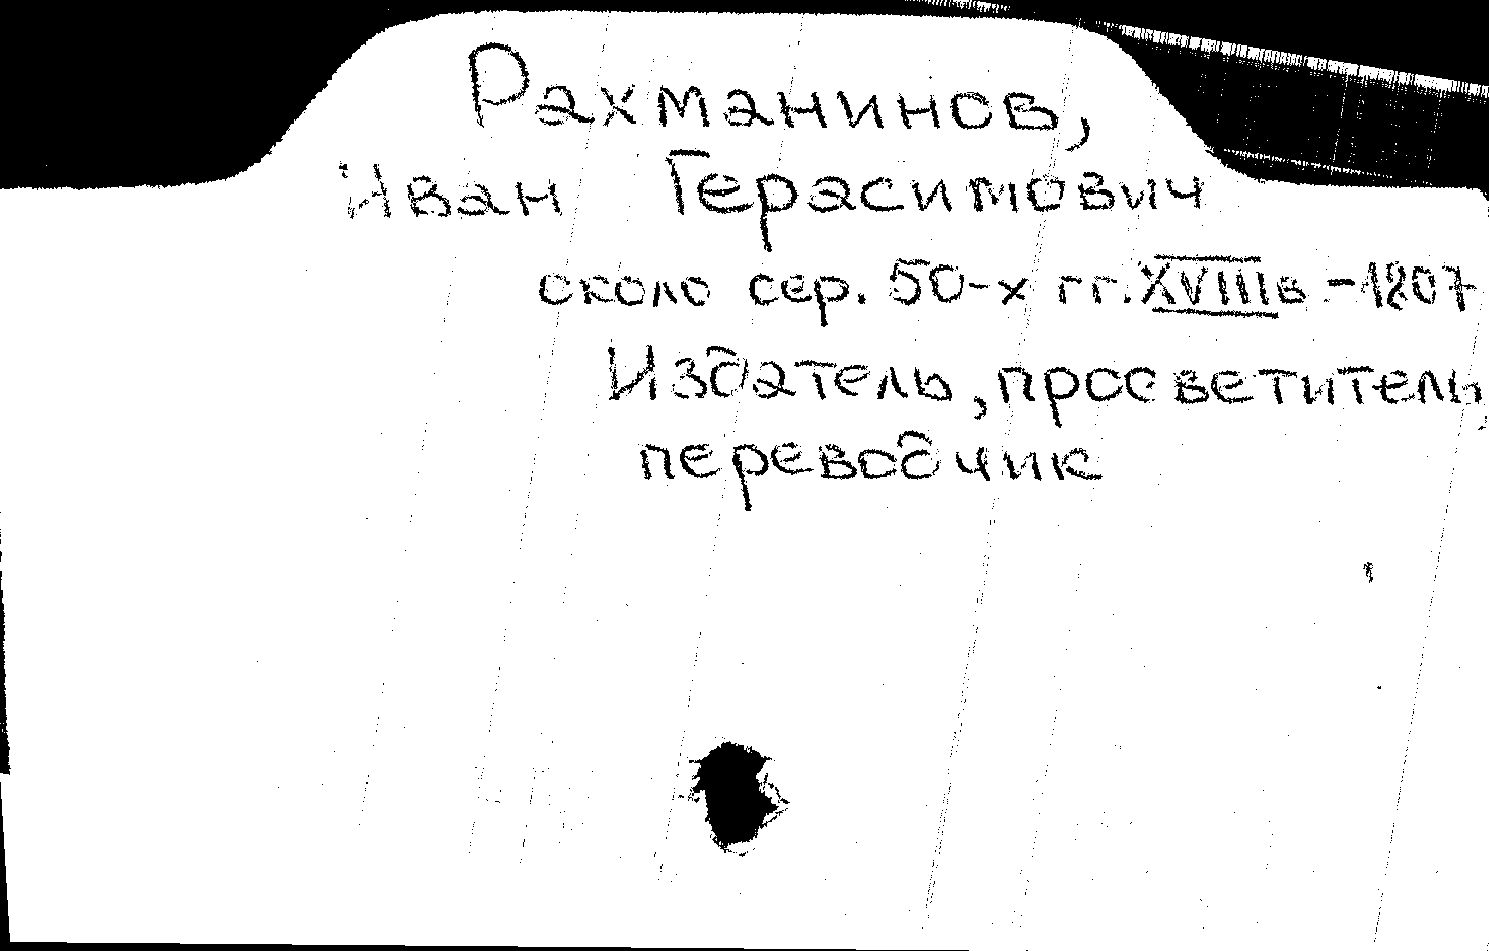 Рахманинов,
Иван Герасимович
около сер. 50-х гг. XVIII в - 1807
Издатель, просветитель,
переводчик